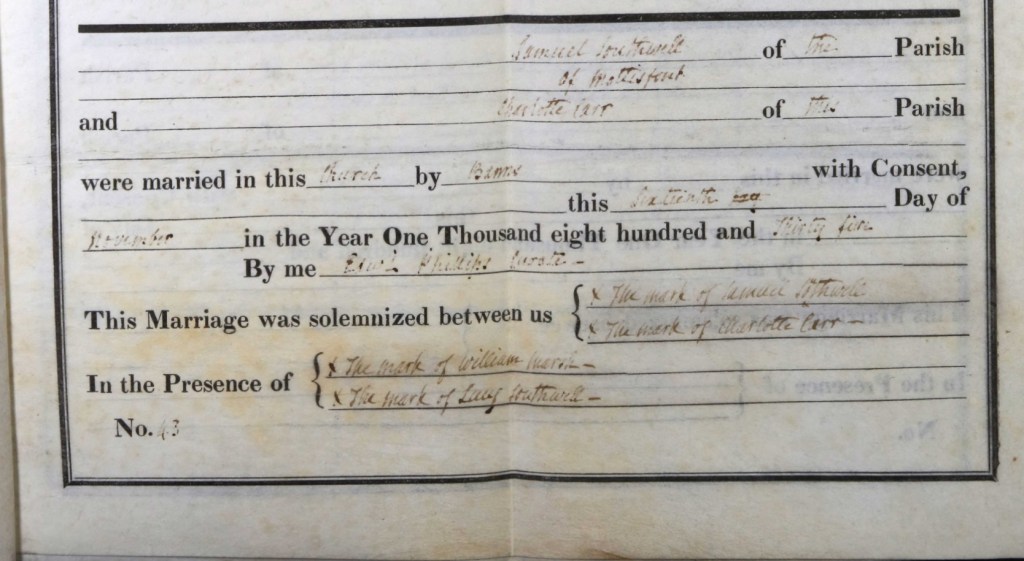 Samuel Southwell of the Parish
of Mottisfont
and Charlotte Carr of this Parish
were married in this Church by Banns with Consent,
this Sixteenth Day of
November in the Year One Thousand eight hundred and Thirty five
By me Edwd Phillips Curate
This Marriage was solemnized between us { x The mark of Samuel Sothwell
x The mark of Charlotte Carr —
In the Presence of { x The mark of William Marsh —
x The mark of Lucy Southwell —
No. 43